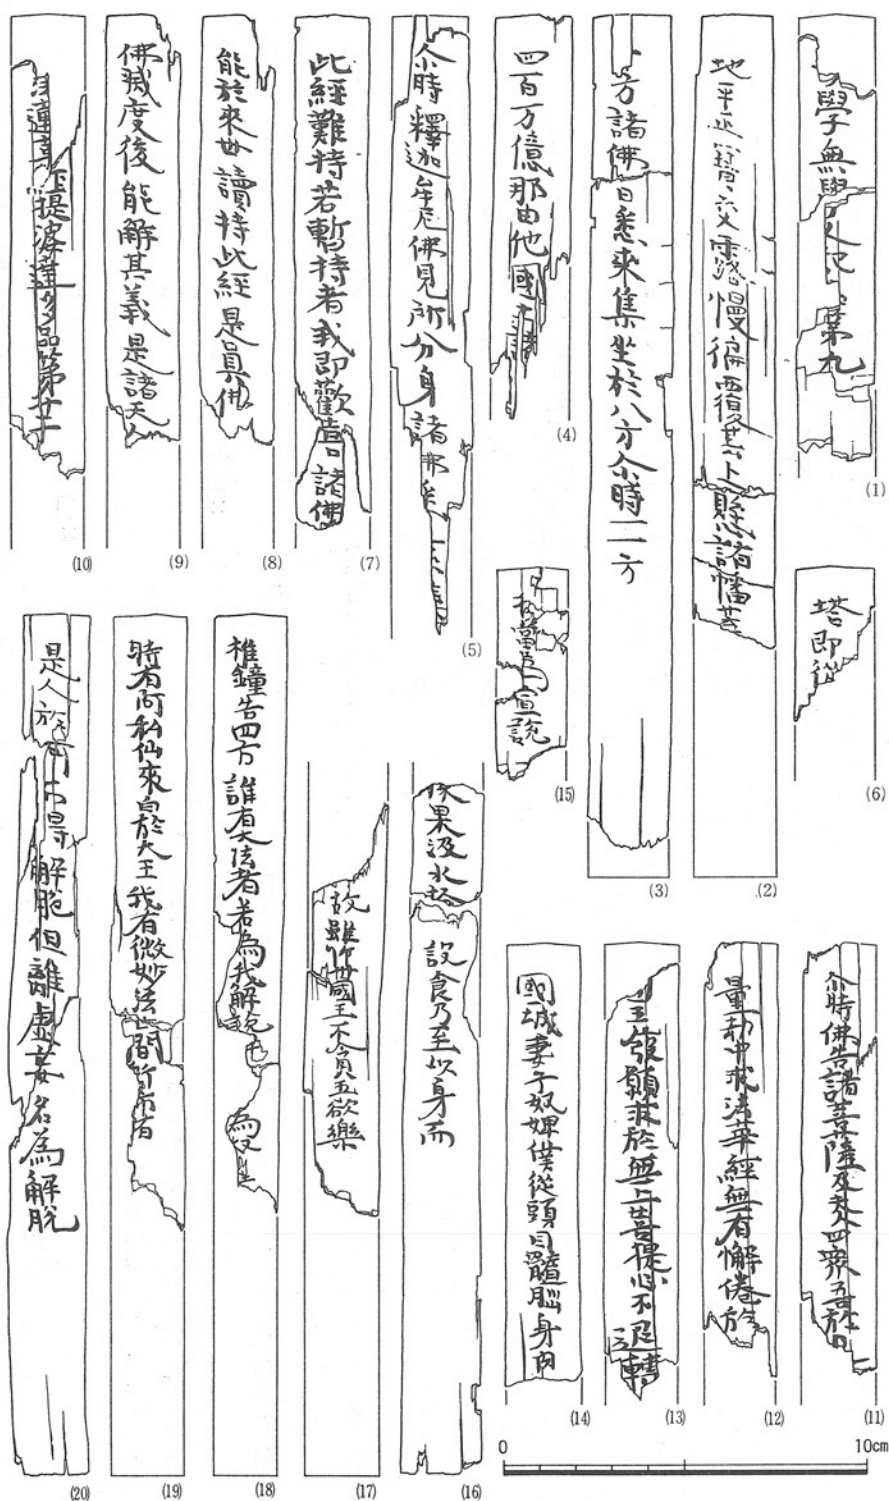 學無學人記 第九
(1)
地平正寶交露慢徧覆其上懸諸幡蓋
(2)
方諸佛 皆悉來集坐於八方尒時一一方
(3)
四百万億那由他國 諸
(4)
尒時釋迦牟尼佛見所分身諸佛
(5)
塔即從
(6)
此經難持若暫持者我即歡喜諸佛
(7)
能於來世讀持此經是真佛
(8)
佛滅度後能解其義是諸天人
(9)
蓮 經提婆達多品第十二
(10)
尒時佛告諸菩薩及天人四衆吾於
(11)
量劫中求法華經無有懈倦於
(12)
王發願求於無上菩提心不退轉
(13)
國城妻子奴婢僕從頭目髓腦身肉
(14)
宣說
(15)
果汲水 設食乃至以身而
(16)
故雖作世國王不貪五欲樂
(17)
椎鐘告四方誰有大法者若為我解說 為
(18)
時有阿私仙來白於大王我有微妙法世間所希有
(19)
是人於 不得解脫但離虛妄名為解脫
(20)
0 10cm